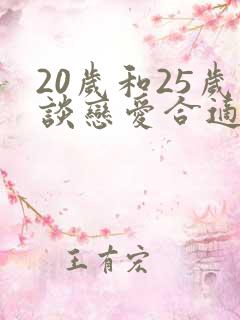 20歲和25歲
談戀愛合適
王有宏